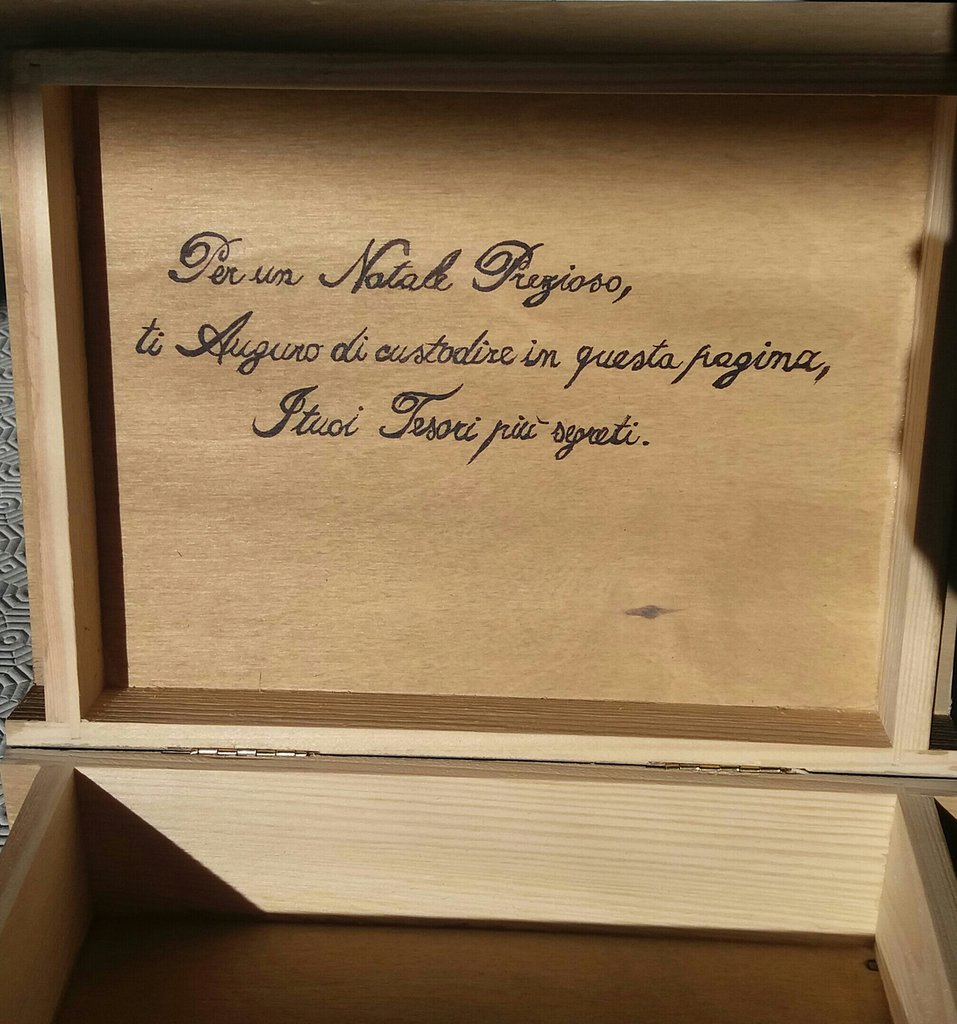 Per un Natale Prezioso,
ti Auguro di custodire in questa pagina,
I tuoi Tesori più segreti.